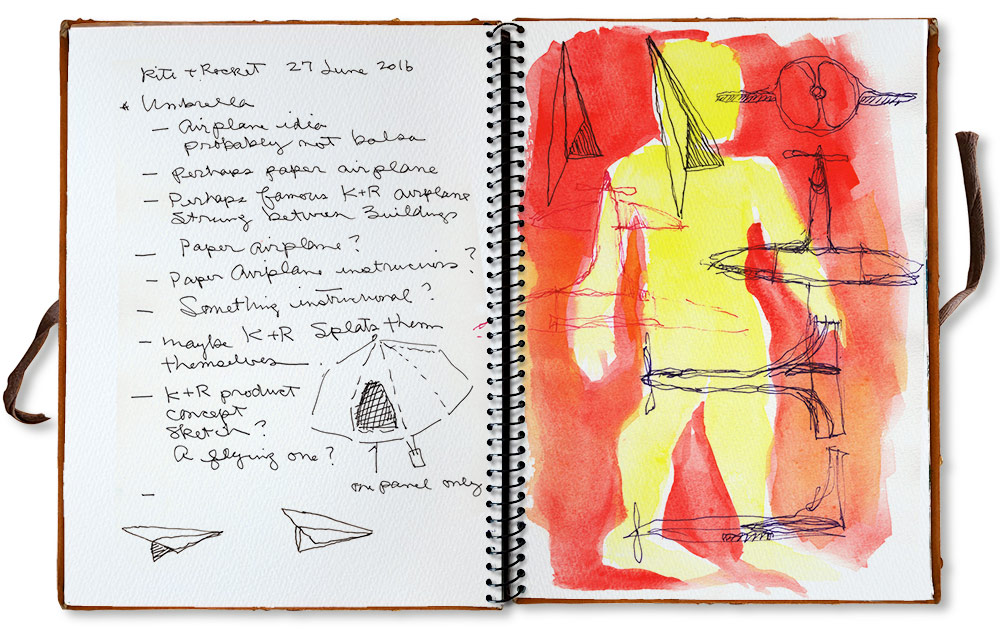 Kite + Rocket 27 June 2016
* Umbrella
— Airplane idea
probably not balsa
— Perhaps paper airplane
— Perhaps famous K+R airplane
Strung between Buildings
— Paper airplane?
— Paper Airplane instructions?
— Something instructional?
— maybe K+R Splats them
themselves
— K+R product
concept
sketch?
A flying one?
one panel only
—